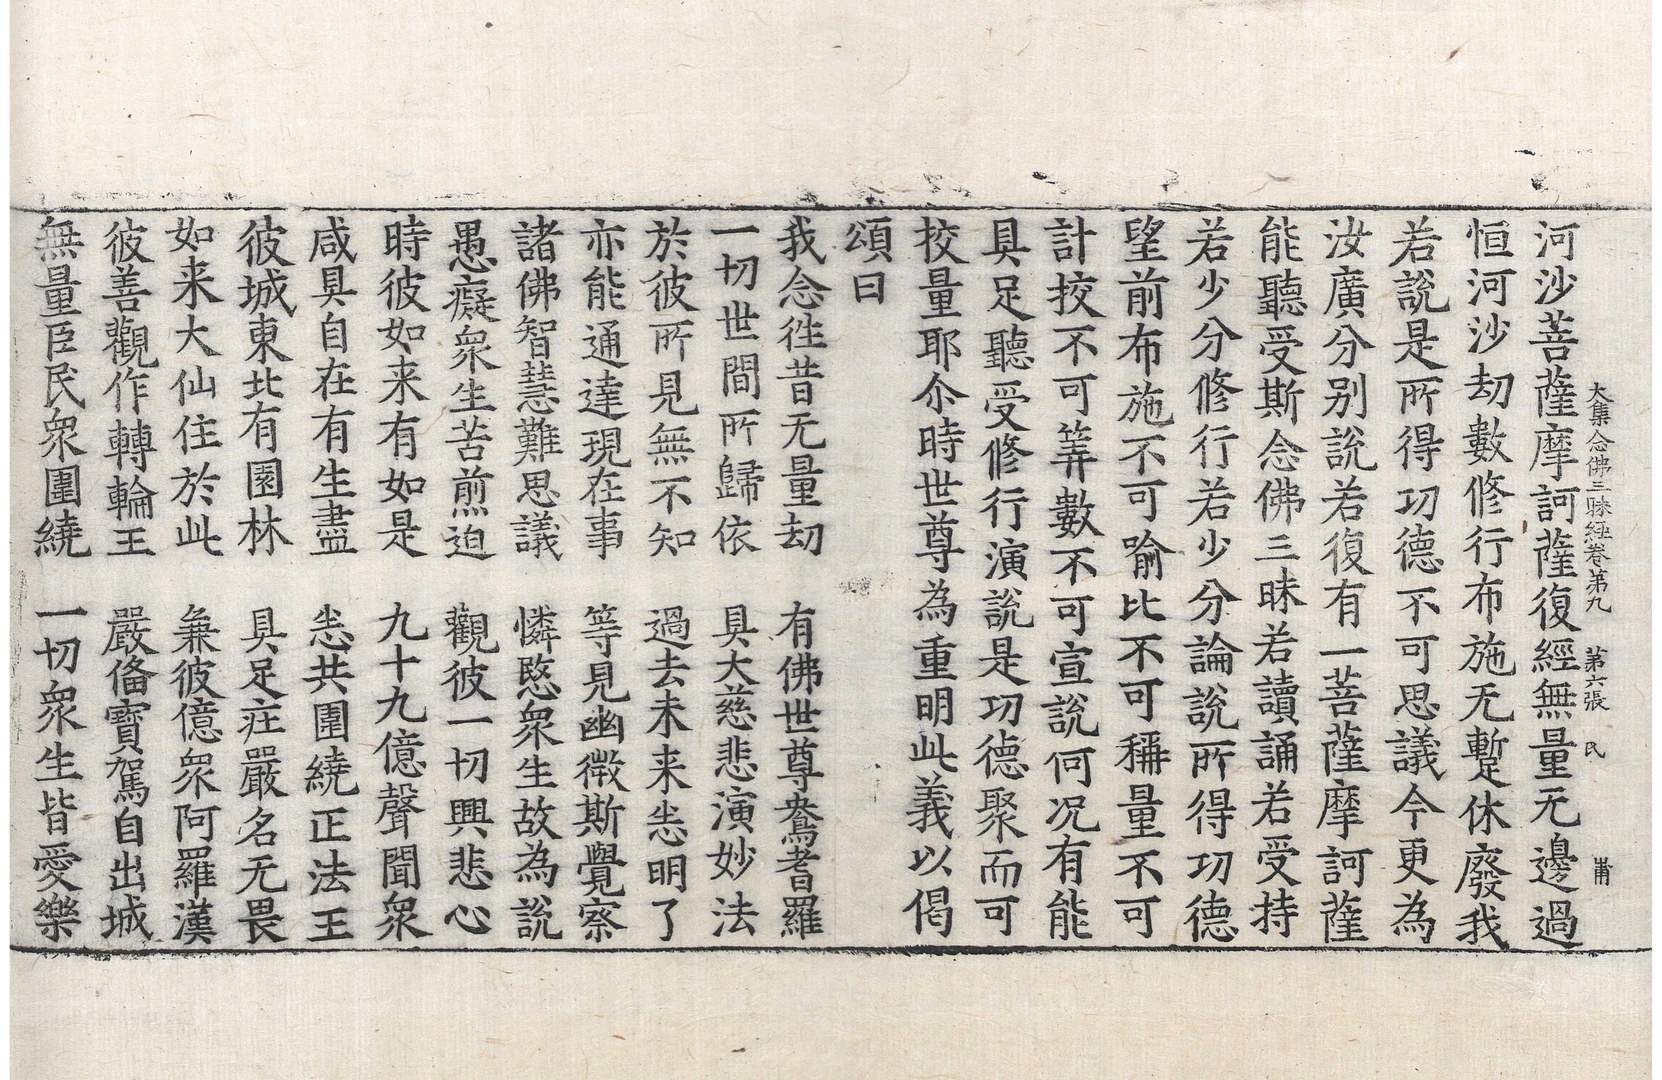 大集念佛三昧經卷第九　第六張　民
河沙菩薩摩訶薩復經無量无邊過
恒河沙劫數修行布施无蹔休廢我
若說是所得功德不可思議今更為
汝廣分别說若復有一菩薩摩訶薩
能聽受斯念佛三昧若讀誦若受持
若少分修行若少分論說所得功德
望前布施不可喻比不可稱量不可
計挍不可筭數不可宣說何况有能
具足聽受修行演說是功德聚而可
挍量耶尒時世尊為重明此義以偈
頌曰
我念往昔无量劫　有佛世尊鴦耆羅
一切世間所歸依　具大慈悲演妙法
於彼所見無不知　過去未来悉明了
亦能通達現在事　等見幽微斯覺察
諸佛智慧難思議　憐愍衆生故為說
愚癡衆生苦煎迫　觀彼一切興悲心
時彼如来有如是　九十九億聲聞衆
咸具自在有生盡　悉共圍繞正法王
彼城東北有園林　具足莊嚴名无畏
如来大仙住於此　兼彼億衆阿羅漢
彼善觀作轉輪王　嚴俻寶駕自出城
無量臣民衆圍繞　一切衆生皆愛樂